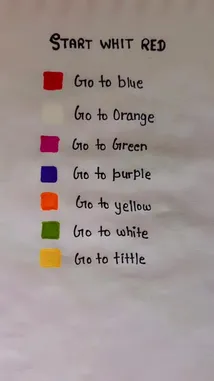 START WHIT RED
Go to blue
Go to Orange
Go to Green
Go to purple
Go to yellow
Go to white
Go to tittle